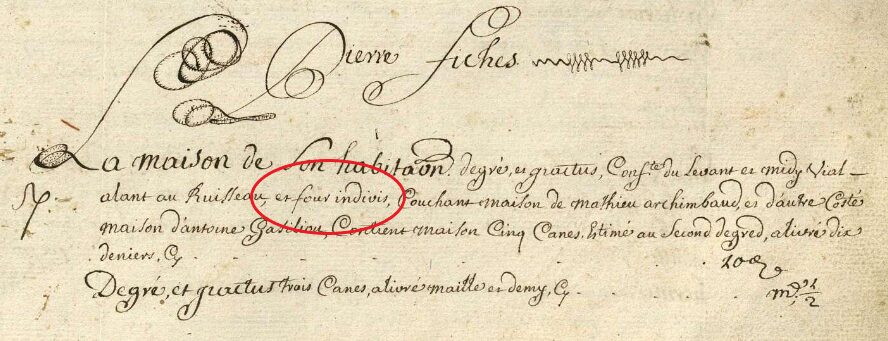 Pierre fiches
La maison de son habitaōn. degré, et quactus, Confte. du Levant et midy Vial
alant au Ruisseau, et four indivis, Couchant maison de mathieu archimbaud, et d'autre Costé
maison d'antoine Gasiliou, Contient maison Cinq Canes. Estimé au Second degred, alivré dix
deniers, Cy . . . . . 10
Degré, et quactus trois Canes, alivré maille et demy, Cy . . . . m. 1/2